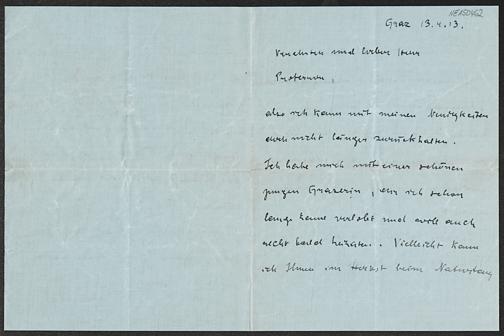 Graz 13.4.13.
Verehrter und lieber Herr
Professor,
also ich kann mit meinen Neuigkeiten
auch nicht länger zurückhalten.
Ich habe mich mit einer schönen
jungen Grazerin, die ich schon
lange kenne verlobt und will auch
recht bald heiraten. Vielleicht kann
ich Ihnen im Herbst beim